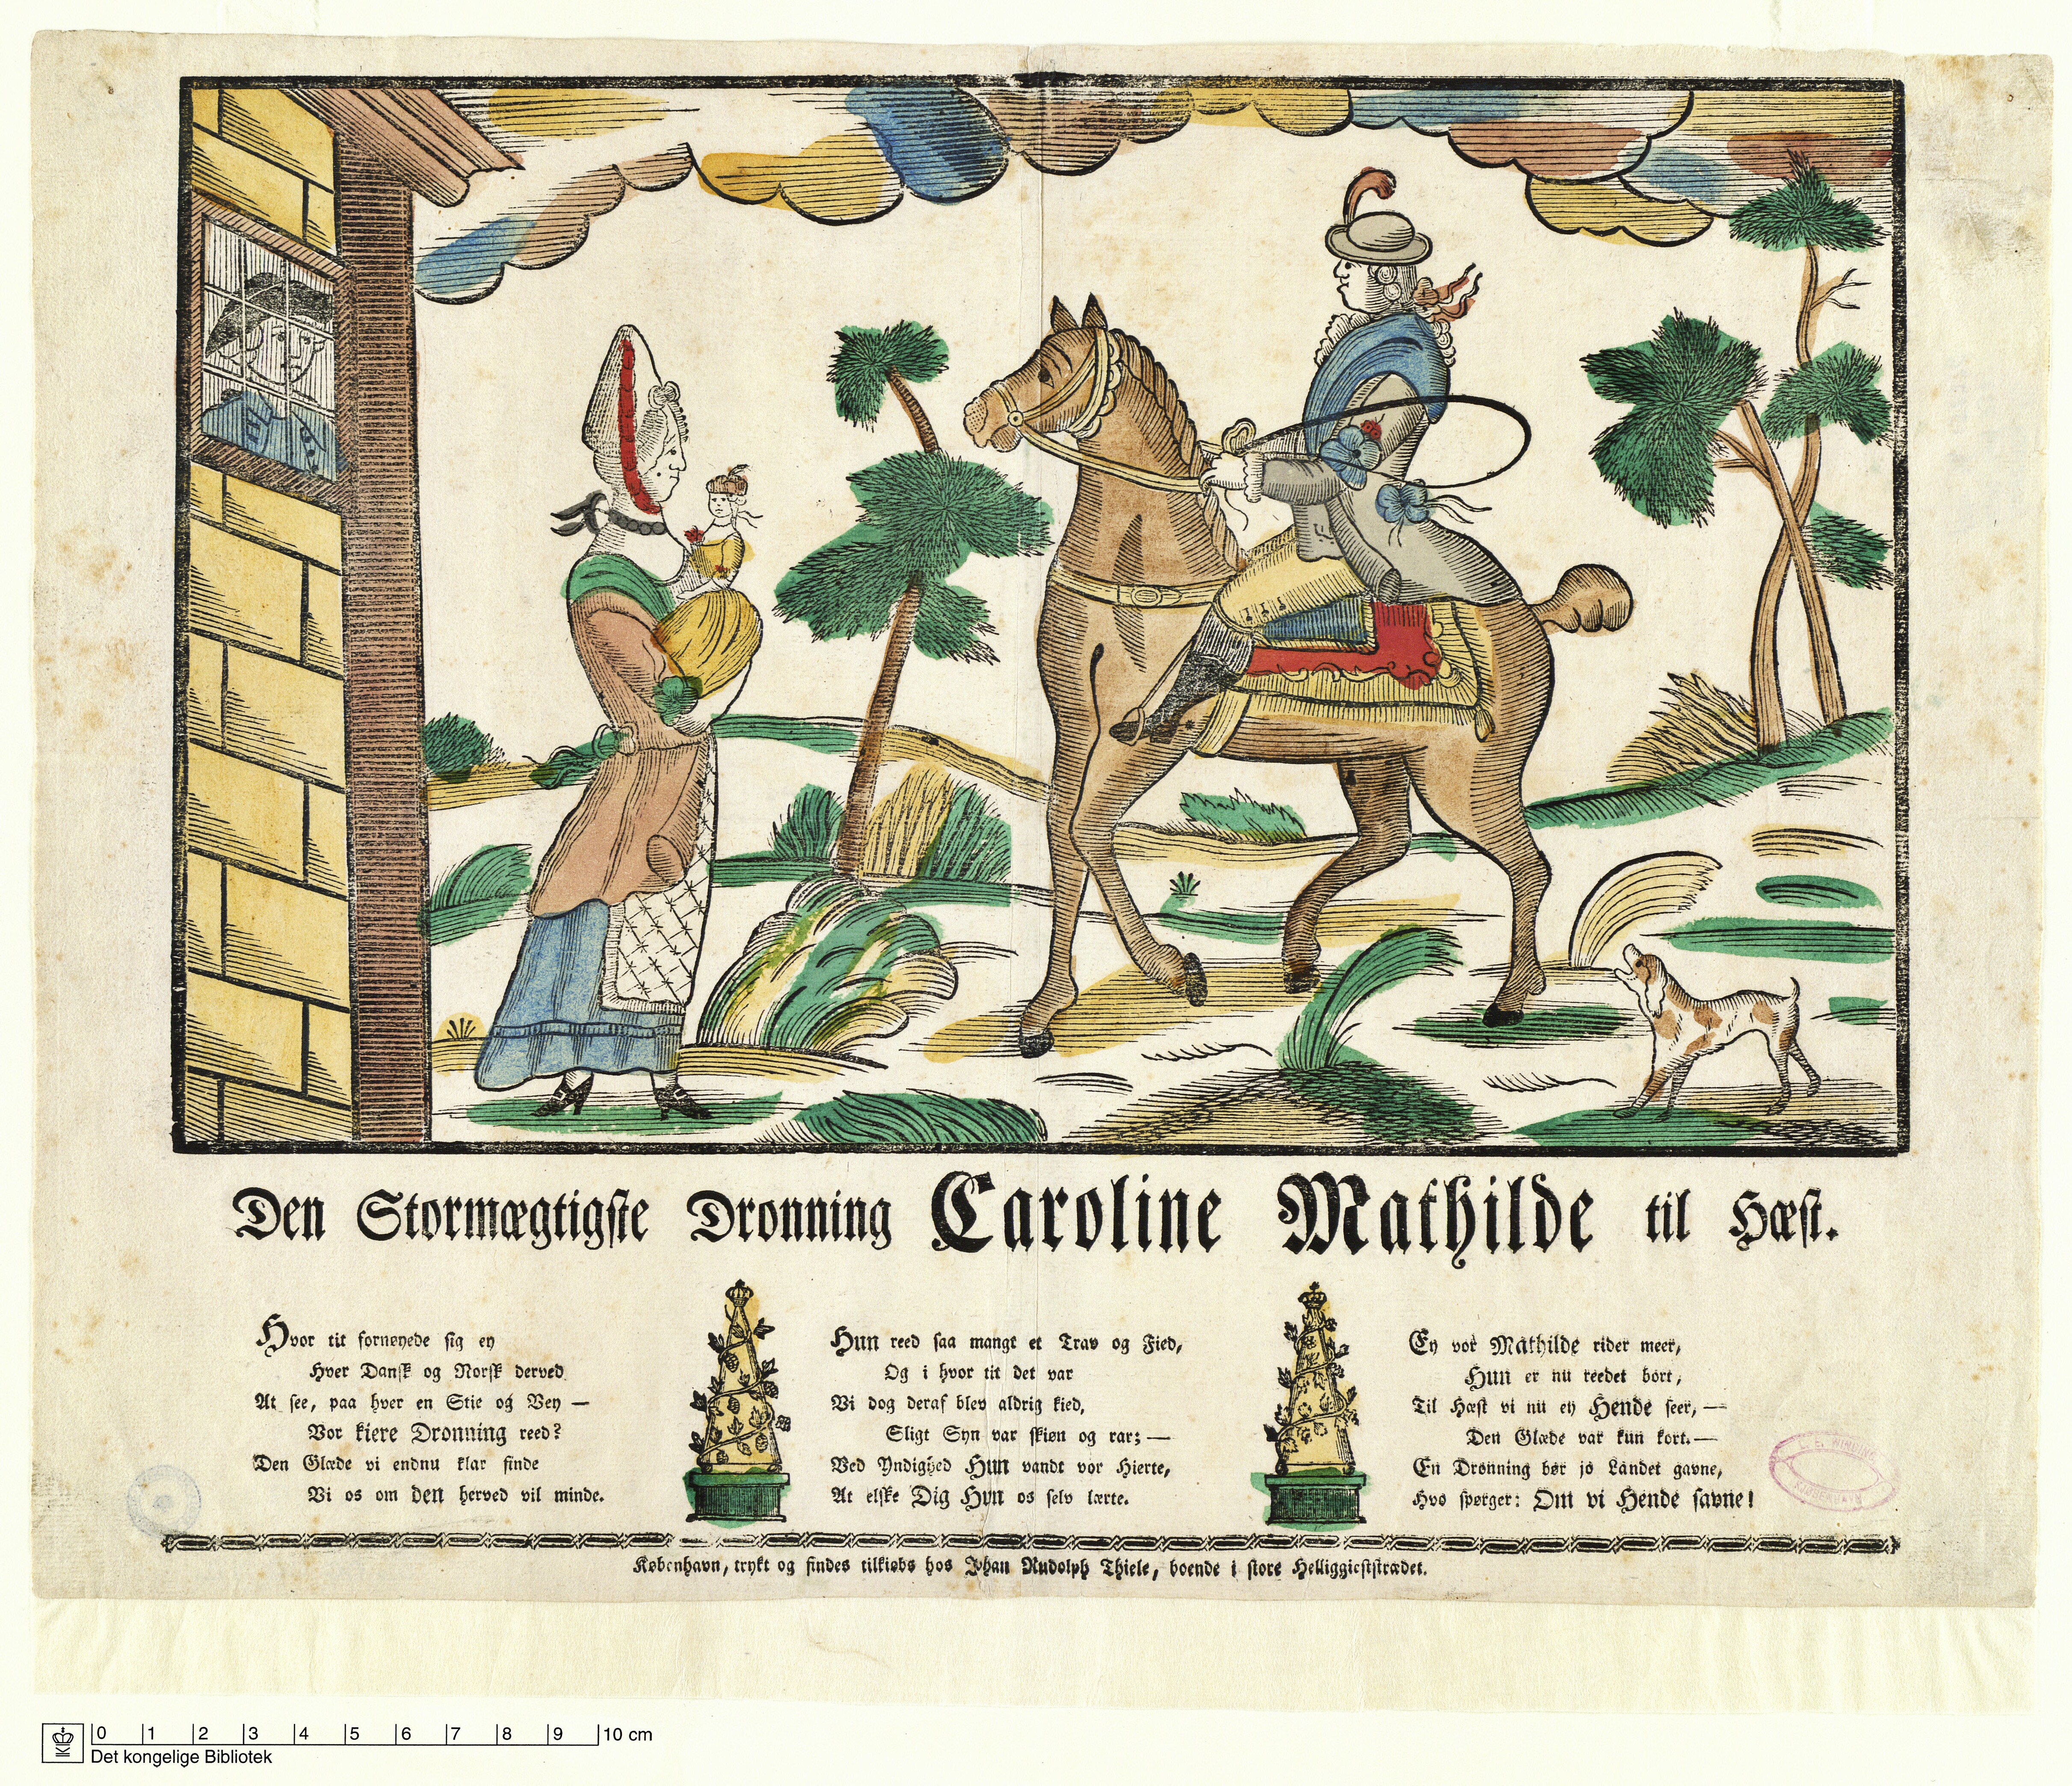 Den Stormægtigste Dronning Caroline Mathilde til Hæst.
Hvor tit fornøyede sig ey
Hver Dansk og Norsk derved
At see, paa hver en Stie og Vey —
Vor kiere Dronning reed?
Den Glæde vi endnu klar finde
Vi os om den herved vil minde.
Hun reed saa mangt et Trav og Fied,
Og i hvor tit det var
Vi dog deraf blev aldrig kied,
Sligt Syn var skiøn og rar; —
Ved Yndighed Hun vandt vor Hierte,
At elske Dig Hun os selv lærte.
Ey vor Mathilde rider meer,
Hun er nu reedet bort,
Til Hæst vi nu ey Hende seer, —
Den Glæde var kun kort. —
En Dronning bør jo Landet gavne,
Hvo spørger: Om vi Hende savne!
København, trykt og findes tilkiøbs hos Johan Rudolph Thiele, boende i store Helliggieststrædet.
0 1 2 3 4 5 6 7 8 9 10 cm
Det kongelige Bibliotek